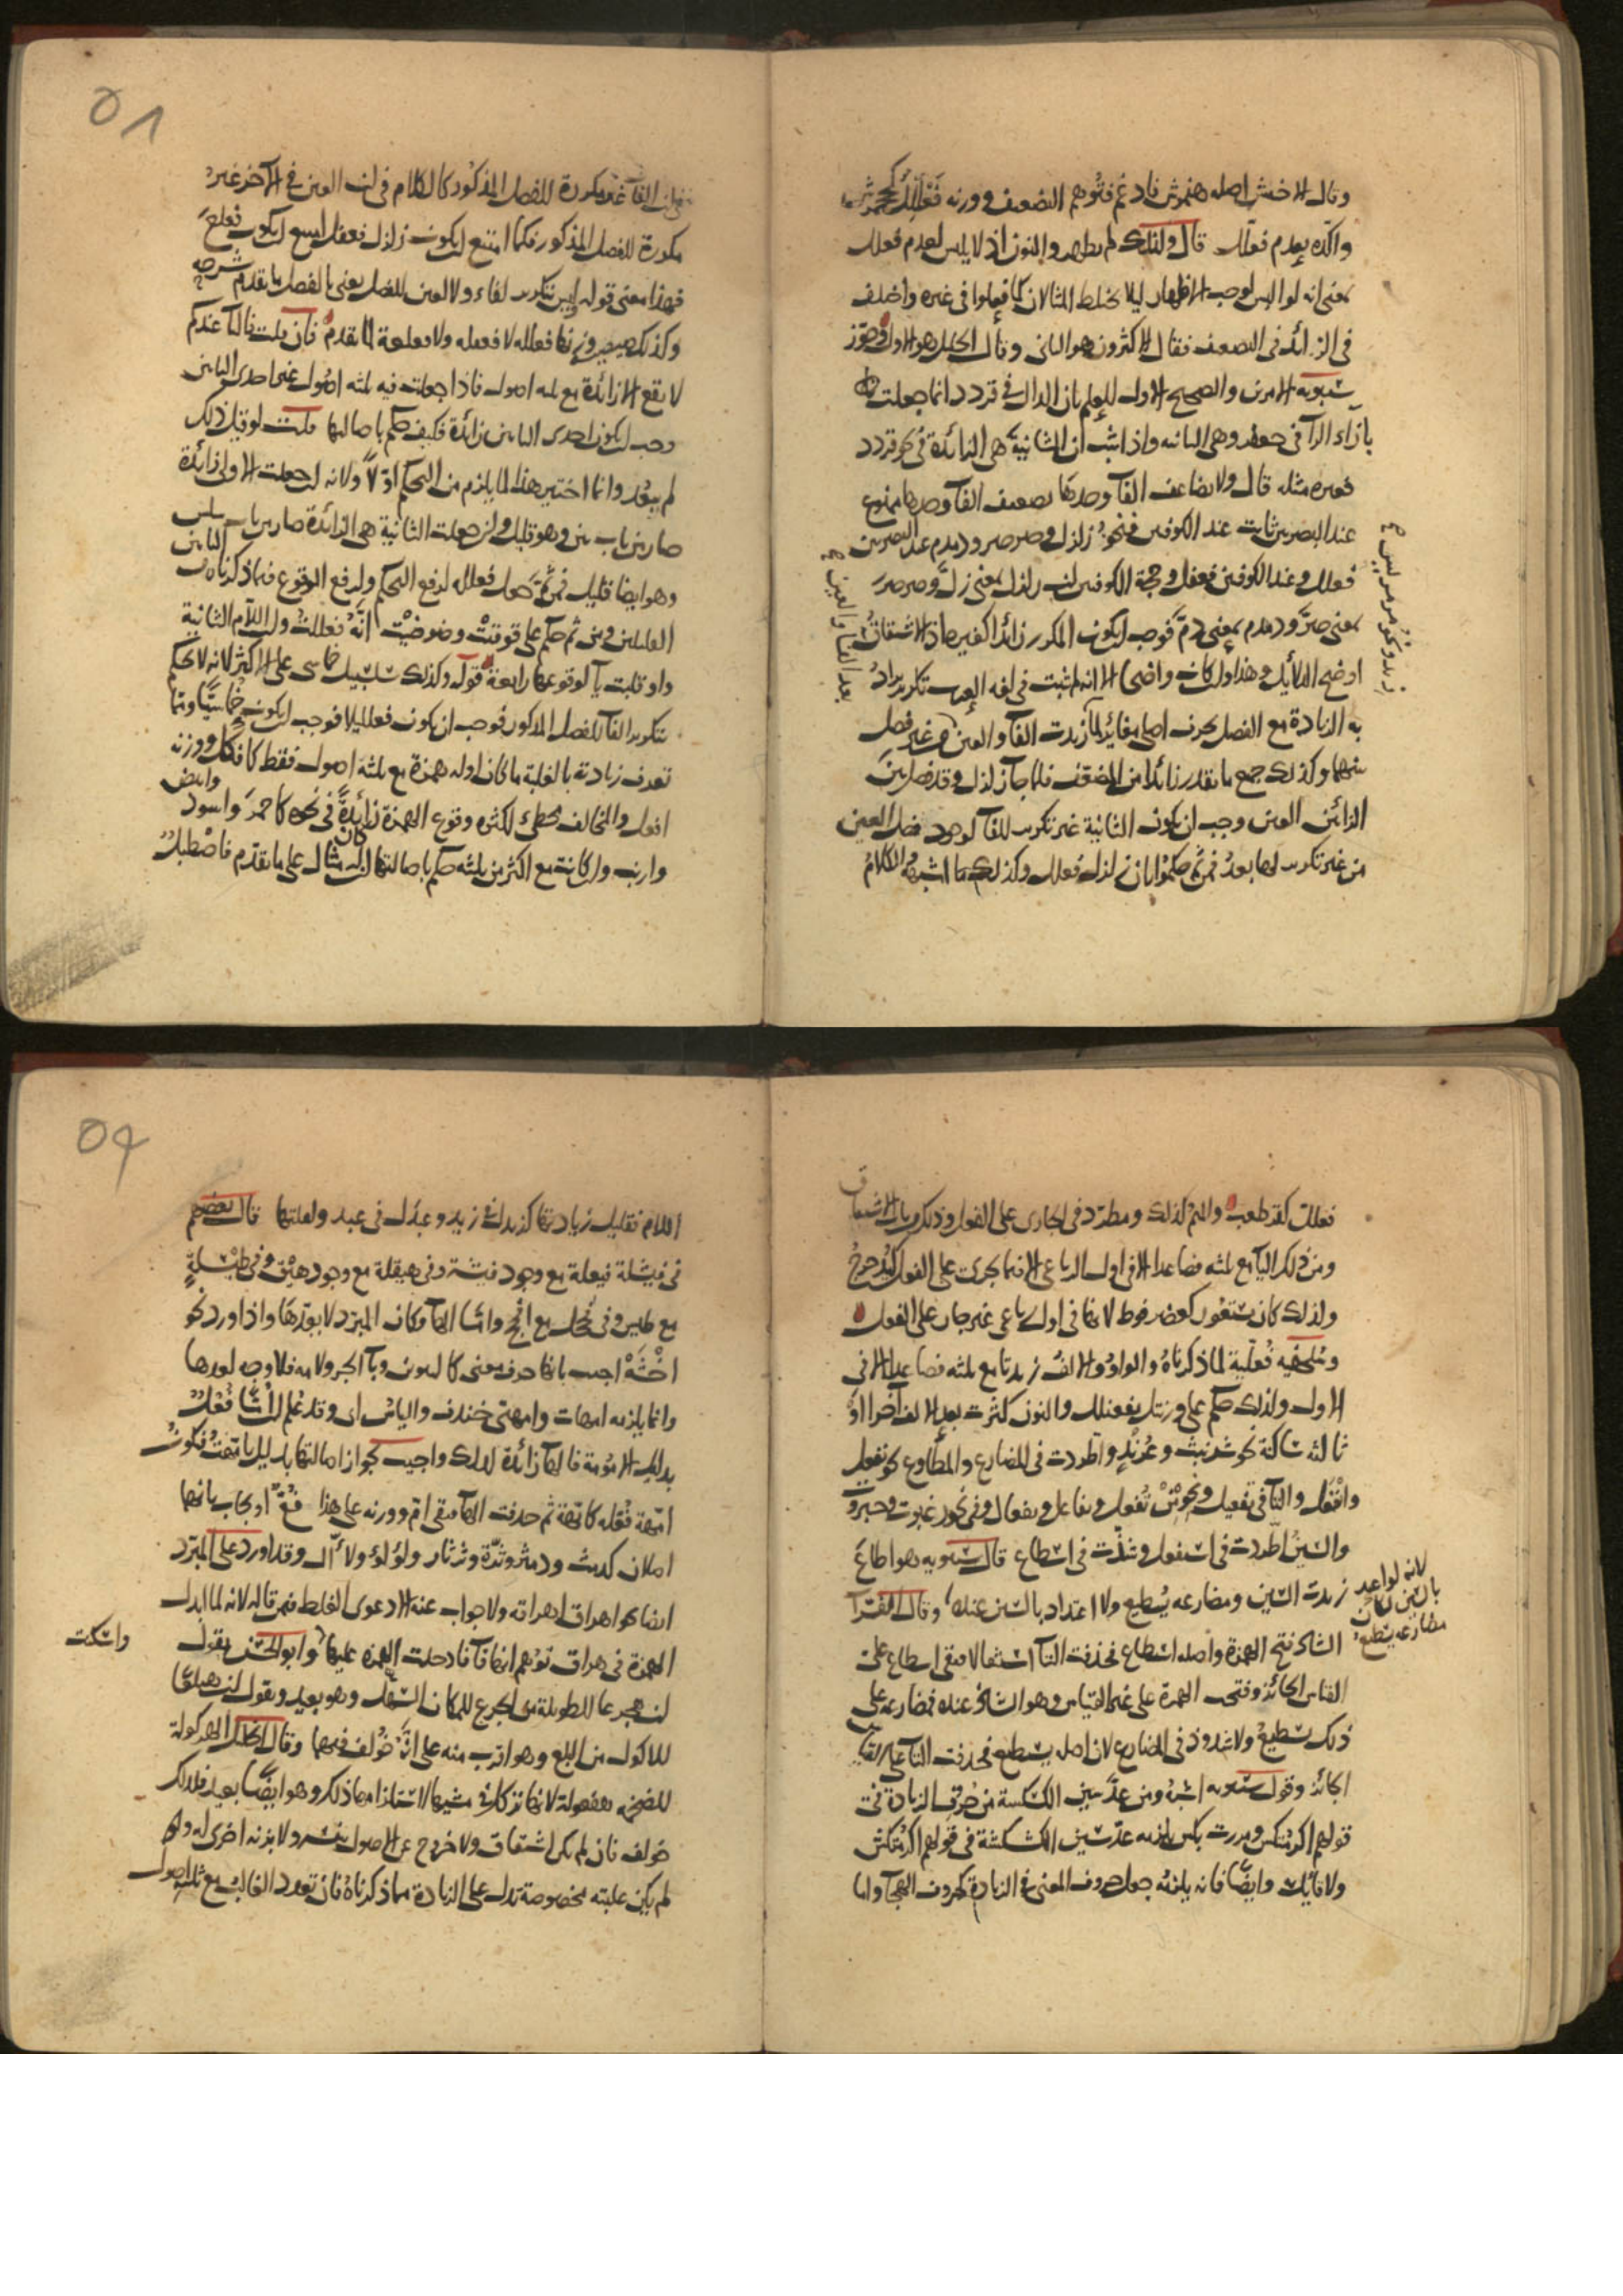 وقال الاخفش اصله هنمرش فادغم فتوهم التضعيف ووزنه فعللل كجحمرش
واكده بعدم فعلل قال ولذلك لم يظهروا النون اذ لا يلبس لعدم فعلل
يعنى انه لو البس لوجب الاظهار ليلا يختلط المثالان كما فعلوا فى غيره واختلف
فى الزائد فى التضعيف فقال الاكثرون هو الثانى وقال الخليل هو الاول وجوز
سيبويه الامرين والصحيح الاول للعلم بان الدال فى قردد انما جعلت
بازاء الرآ فى جعفر وهى الثانيه واذا ثبت ان الثانية هى الزائدة فى نحو قردد
فغيره مثله قال ولا يضاعف الفآ وحدها تضعيف الفآ وحدها ممنوع
عند البصريين ثابت عند الكوفيين فنحو زلزل وصرصر ودمدم عند البصريين
فعلل وعند الكوفيين فعفل وحجة الكوفيين ان زلزل بمعنى زل وصرصر
بمعنى صر ودمدم بمعنى دم فوجب ان يكون المكرر زائدا كغيره اذ الاشتقاق
اوضح الدلائل وهذا وان كان واضحا الا انه لم يثبت فى لغه العرب تكرير يراد
به الزيادة مع الفصل بحرف اصلى
بينهما وكذلك جميع ما يقدر زائدا من المضعف فلما جآ زلزل وقد فصل بين
الزائدين العين وجب ان يكون الثانية غير تكرير للفآ لوجود فصل العين
من غير تكرير لها بعد فمن ثم حكموا بان زلزل فعلل وكذلك ما اشبهه الكلام
فى ان الفآ غير مكررة للفصل المذكور كالكلام فى ان العين فى الآخر غير
مكررة للفصل المذكور فكما امتنع ان يكون زلزل فعفل امتنع ان يكون فعلع
فهذا معنى قوله وليس بتكرير لفاء ولا لعين للفصل يعنى بالفصل ما تقدم شرحه
وكذلك صيصية وزنها فعلله لا فعفله ولا فعلعة لما تقدم فان قلت فاليآ عندكم
لا تقع الا زائدة مع ثلثه اصول فاذا جعلت فيه ثلثه اصول غير احدى اليائين
وجب ان يكون احدى اليائين زائدة فكيف حكم باصالتها قلت لو قيل ذلك
لم يبعد وانما اختير هذا لما يلزم من التحكم اولا ولانه ان جعلت الاولى زائدة
صار من باب يين وهو قليل وان جعلت الثانية هى الزائدة صار من باب سلس
وهو ايضا قليل فمن ثم جعل فعلله لدفع التحكم ولدفع الوقوع فيما ذكرناه من البابين
القليلين فى يين ثم حكم على قوقيت وضوضيت انه فعللت وان اللام الثانية
واو قلبت يآ لوقوعها رابعة قوله وكذلك سلسبيل خماسى على الاكثر لانه لا يحكم
بتكرير الفآ للفصل المذكور فوجب ان يكون فعلليلا فوجب ان يكون خماسيا ومما
تعرف زيادته بالغلبة ما كان اوله همزة مع ثلثة اصول فقط كافكل ووزنه
افعل والمخالف مخطئ لكثره وقوع الهمزة زائدة فى نحوه كاحمر واسود وابيض
وارنب وان كانت مع اكثر من ثلثه حكم باصالتها ان كان له مثال على ما تقدم فاصطبل
فعلل كقرطعب والميم كذلك ومطرد فى الجارى على الفعل وذكره باب الاشتقاق
ومن ذلك اليآ مع ثلثه فصاعدا الا فى اول الرباعى الا فيما يجرى على الفعل كيدحرج
ولذلك كان يستعور كعضرفوط لانها فى اول رباعى غير جار على الفعل
وسلحفيه فعلية لما ذكرناه والواو والالف زيدتا مع ثلثه فصاعدا الا فى
الاول ولذلك حكم على ورنتل بفعنلل والنون كثرت بعد الالف آخرا او
ثالثه ساكنة نحو شرنبث وعرند واطردت فى المضارع والمطاوع نحو نفعل
وانفعل والتآ فى تفعيل ونحو تفعل وتفاعل وتفعال وفى نحو رغبوت وجبروت
والسين اطردت فى استفعل وشذت فى اسطاع قال سيبويه هو اطاع
زيدت السين ومضارعه يسطيع ولا اعتداد بالسين عندها وقال الفرآ
الشاذ فتح الهمزة واصله استطاع فحذفت التآ استثقالا فبقى اسطاع على
القياس الجائز وفتحت الهمزة على غير القياس وهو الشاذ عنده فمضارعه على
ذلك يسطيع ولا شذوذ فى المضارع لان اصله يستطيع فحذفت التآ على القياس
الجائز وقول سيبويه اشبه ومن عد سين الكسكسة من حروف الزيادة فى
قولهم اكرمتكس ومررت بكس يلزمه عد شين الكشكشة فى قولهم اكرمتكش
ولا قائل به وايضا فانه يلزمه جعل حروف المعنى فى الزيادة كحروف التهجى واما
لانه لو اعتد
بالسين لكان
مضارعه يسطيع
اللام فتقليل زيادتها كزيدل فى زيد وعبدل فى عبد ولقلتها قال بعضهم
فى فيشلة فيعلة مع وجود فيشة وفى هيقلة مع وجود هيق وفى طيسلة
مع طيس وفى فحجل مع افحج واما الهآ فكان المبرد لا يعدها واذا اورد نحو
اخشه اجيب بانها حرف معنى كالتنوين وبآ الجر ولامه فلا وجه لعدها
وانما يلزمه امهات وامهتى خندف والياس ابى وقد علم ان اما فعل
بدليل الامومة فالهآ زائدة لذلك واجيب بجواز اصالتها بدليل تامهت فيكون
امهة فعله كابهة ثم حذفت الهآ فبقى ام ووزنه على هذا فع او يجاب بانهما
اصلان كدمث ودمثر وثرة وثرثار ولؤلؤ ولاآل وقد اورد على المبرد
ايضا نحو اهراق اهراقه ولا جواب عنه الا دعوى الغلط فيمن قاله لانه لما ابدل
الهمزة فى هراق توهم انها فآ فادخلت الهمزة عليها وابو الحسن يقول
واسكنت
ان هجرعا للطويل من الجرع للمكان السهل وهو بعيد ويقول ان هبلعا
للاكول من البلع وهو اقرب منه على انه خولف فيهما وقال الخليل الهركولة
للضخمه هفعولة لانها تركل فى مشيها لاستلزامها ذلك وهو ايضا بعيد فلذلك
خولف فان لم يكن اشتقاق ولا خروج عن الاصول بنفسه ولا بزنه اخرى له
لم يكن غلبته مخصوصة تدل على الزيادة مما ذكرناه فان تعدد الغالب مع ثلثه اصول